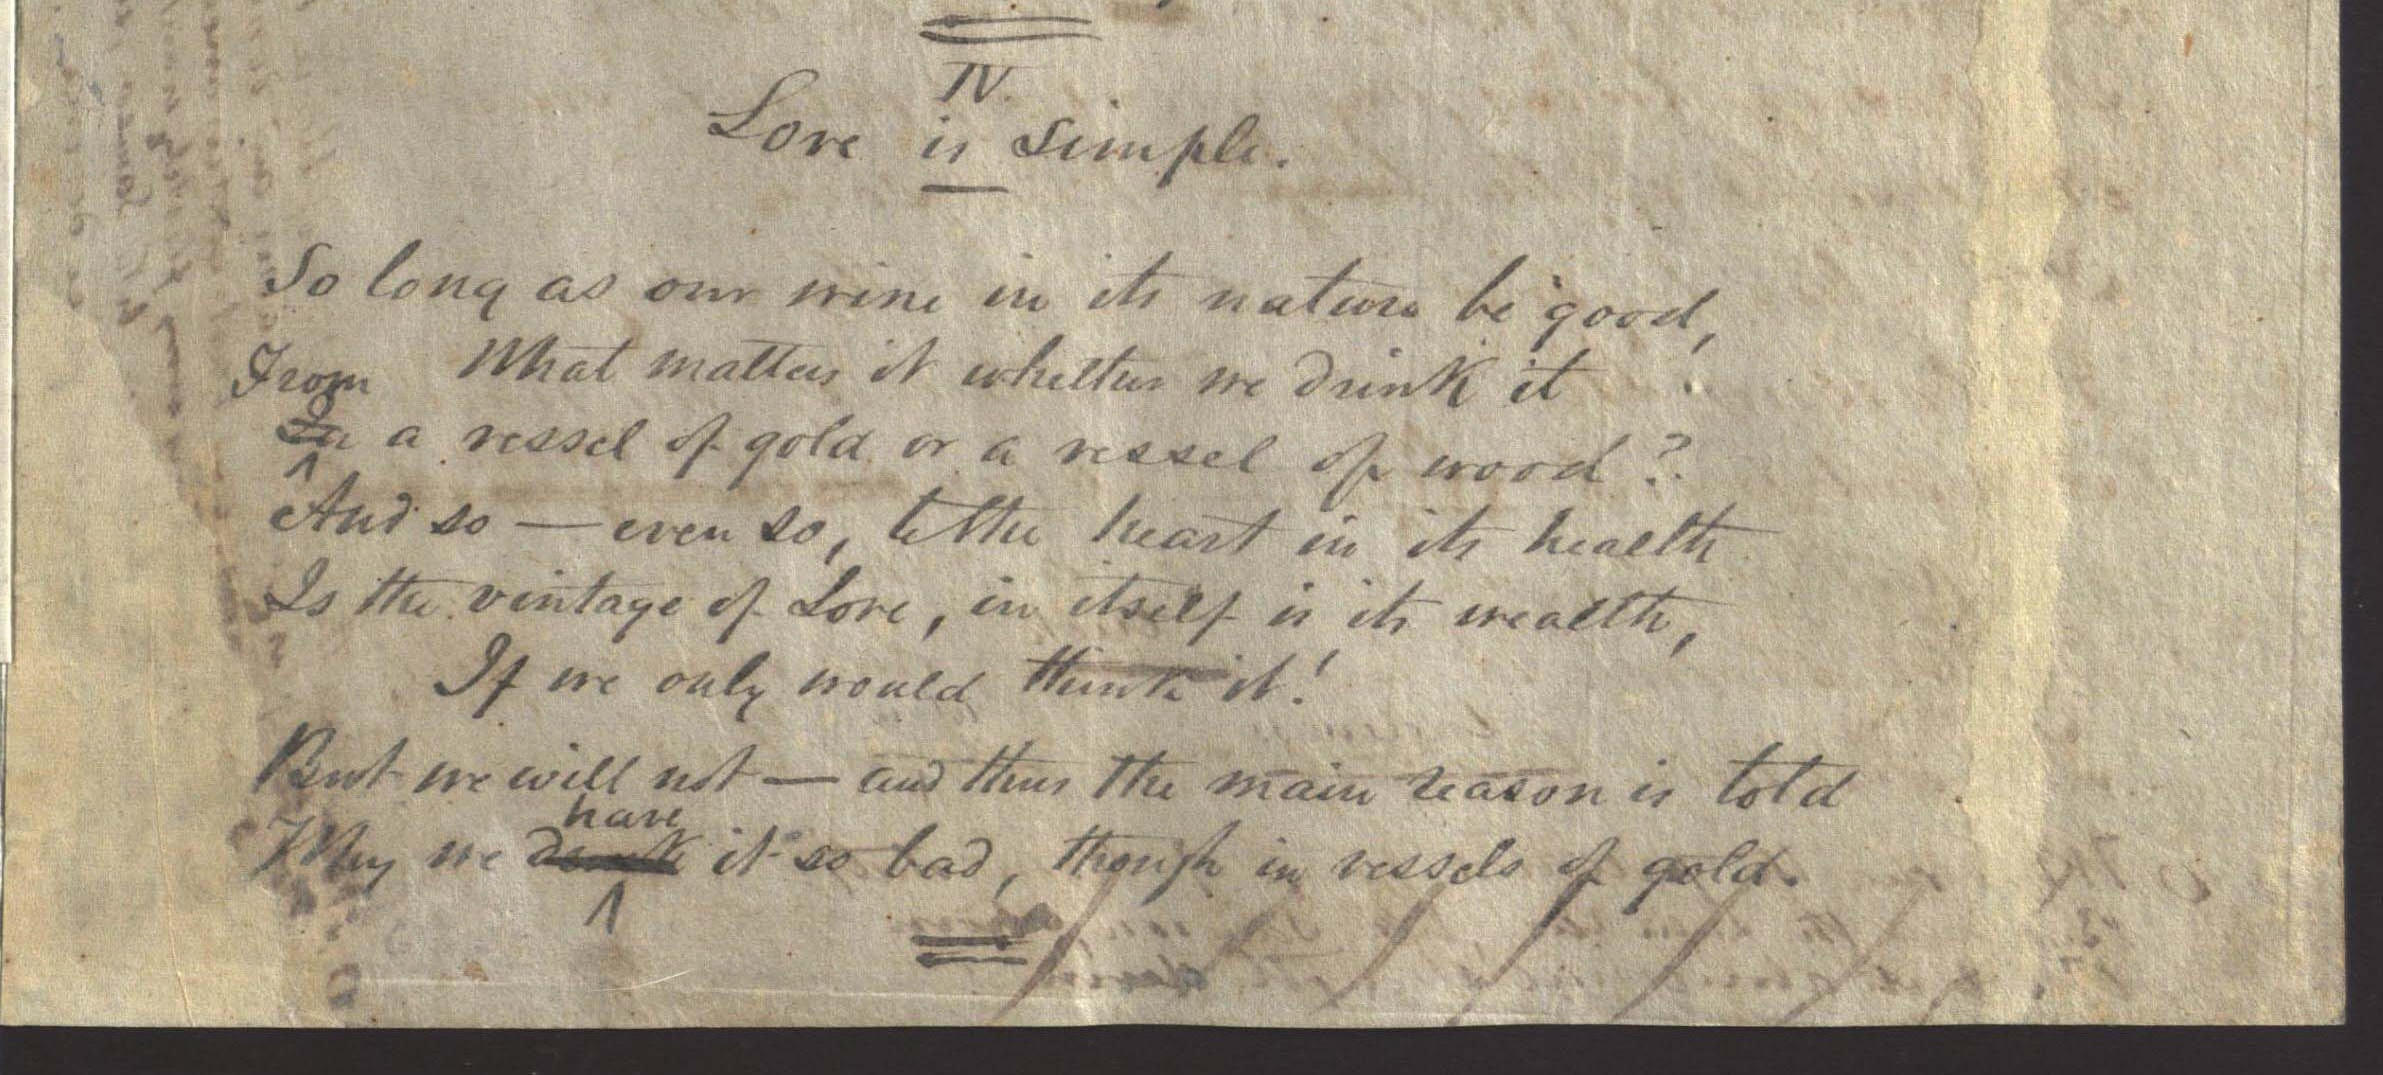 IV.
Love is simple.
So long as our wine in its nature be good,
What matters it whether we drink it
From
In a vessel of gold or a vessel of wood?
And so — even so, to the heart in its health
Is the vintage of Love, in itself is its wealth,
If we only would think it!
But we will not — and thus the main reason is told
have
Why we drink it so bad, though in vessels of gold.